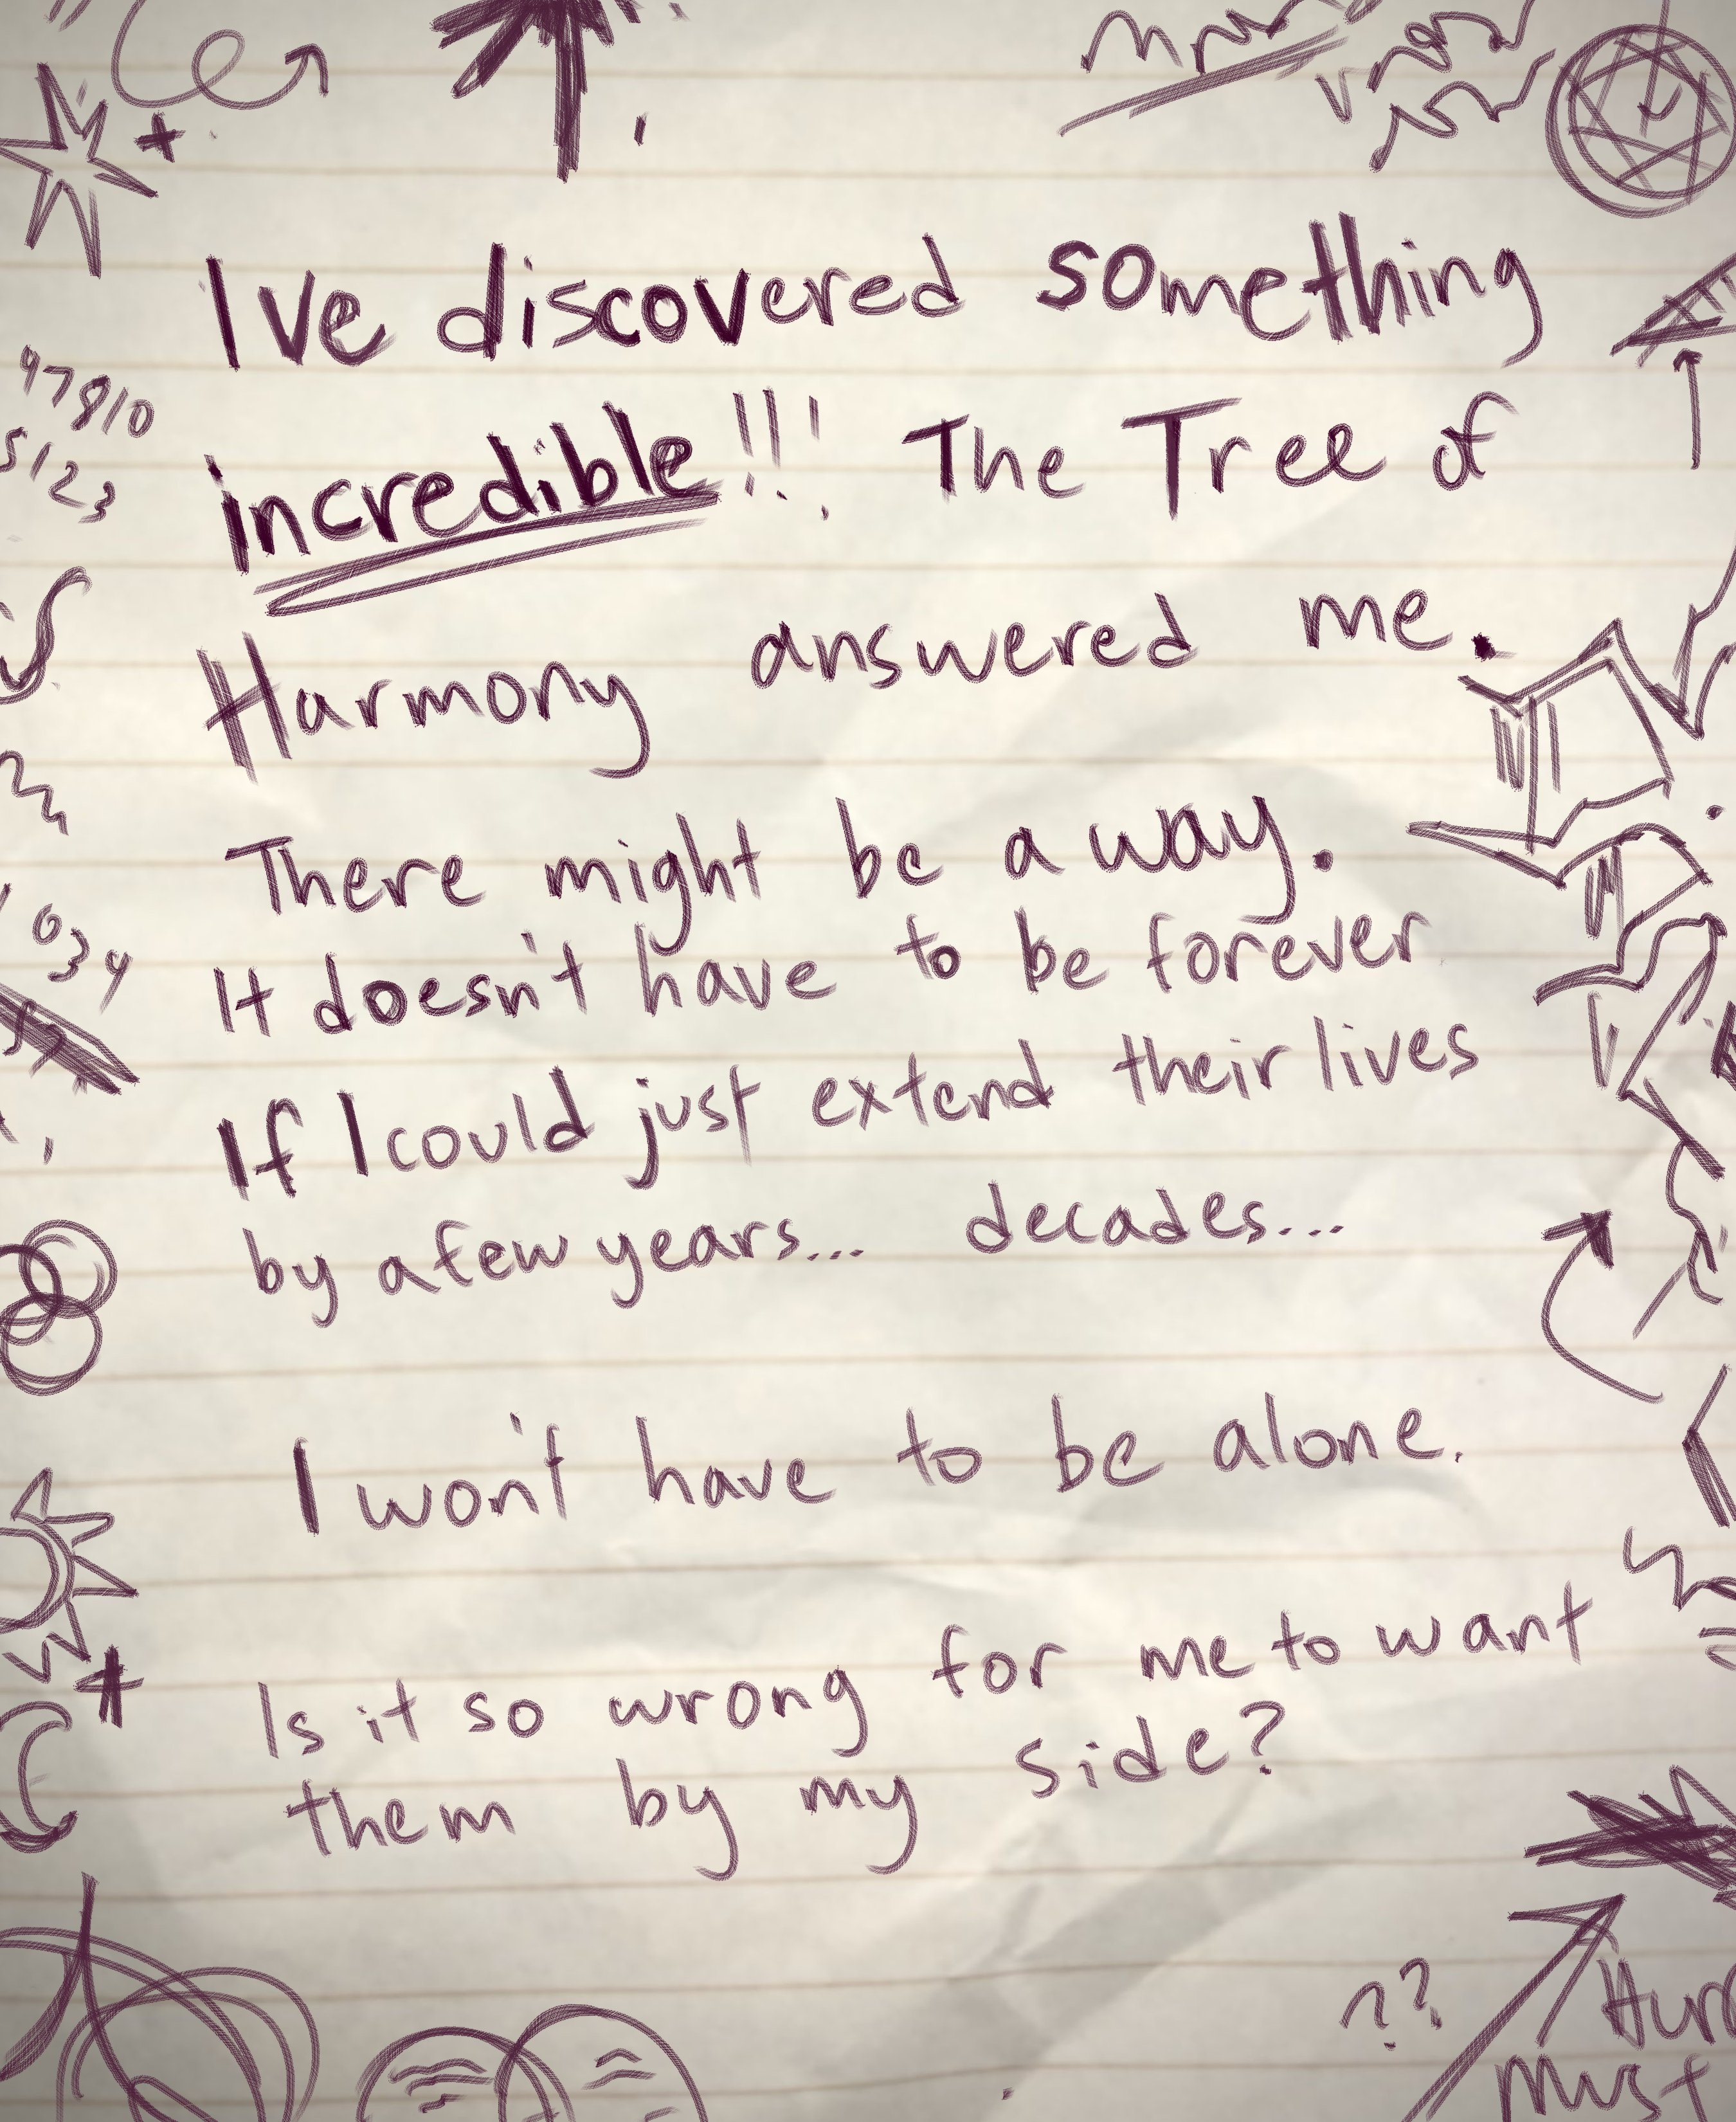 I've discovered something
incredible!!! The Tree of
Harmony answered me.
There might be a way.
It doesn't have to be forever
If I could just extend their lives
by a few years... decades...
I won't have to be alone.
Is it so wrong for me to want
them by my side?
47810
5123
034
??
must